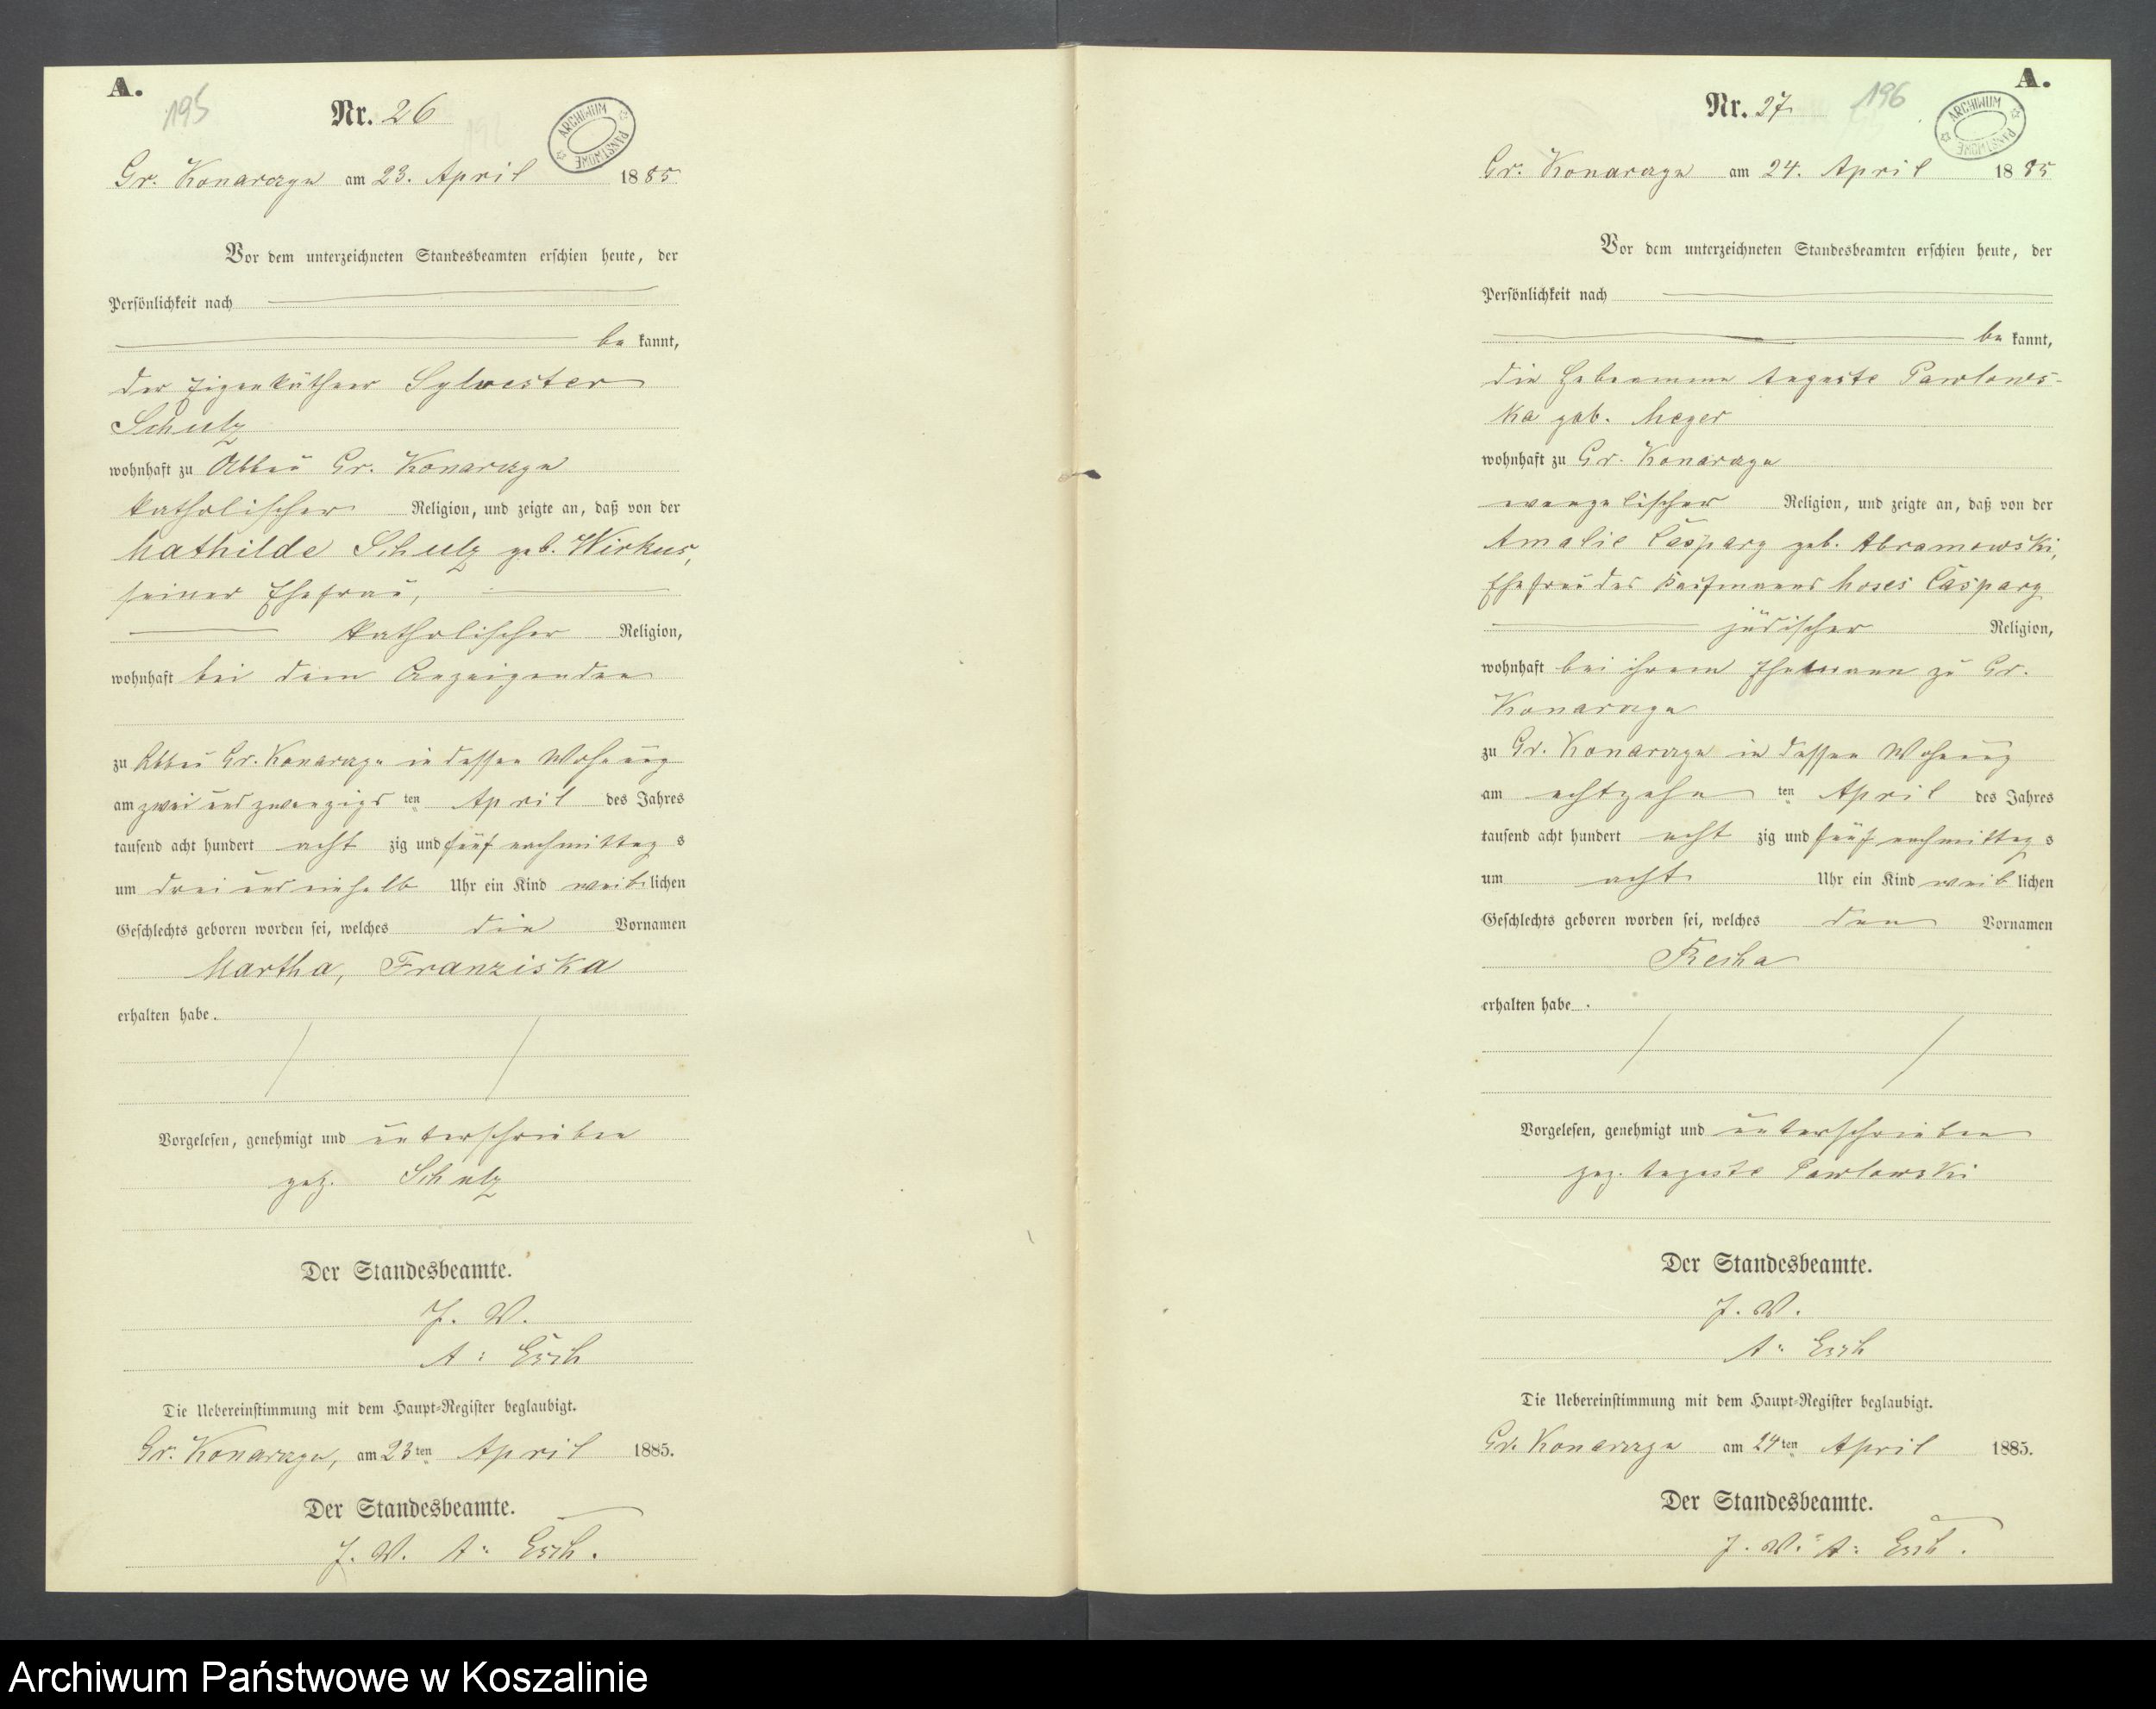 A.
195
Nr. 26
ARCHIWUM PAŃSTWOWE
Gr. Konarczyn am 23. April 1885
Vor dem unterzeichneten Standesbeamten erschien heute, der
Persönlichkeit nach
be kannt,
der Eigenkäthner Sylvester
Schulz
wohnhaft zu Abbau Gr. Konarczyn
katholischer Religion, und zeigte an, daß von der
Mathilde Schulz geb. Wirkus,
seiner Ehefrau,
katholischer Religion,
wohnhaft bei dem Anzeigenden
zu Abbau Gr. Konarczyn in dessen Wohnung
am zwei und zwanzigs ten April des Jahres
tausend acht hundert acht zig und fünf nachmittag s
um drei und einhalb Uhr ein Kind weib lichen
Geschlechts geboren worden sei, welches die Vornamen
Martha, Franziska
erhalten habe.
Vorgelesen, genehmigt und unterschrieben
gez. Schulz
Der Standesbeamte.
J. V.
A: Esch
Die Uebereinstimmung mit dem Haupt-Register beglaubigt.
Gr. Konarczyn, am 23ten April 1885.
Der Standesbeamte.
J. V. A: Esch.
A.
196
Nr. 27
ARCHIWUM PAŃSTWOWE
Gr. Konarczyn am 24. April 1885
Vor dem unterzeichneten Standesbeamten erschien heute, der
Persönlichkeit nach
be kannt,
die Hebeamme Auguste Pawlows-
ka geb. Meyer
wohnhaft zu Gr. Konarczyn
evangelischer Religion, und zeigte an, daß von der
Amalie Caspary geb. Abramowski,
Ehefrau des Kaufmanns Moses Caspary
jüdischer Religion,
wohnhaft bei ihrem Ehemann zu Gr.
Konarczyn
zu Gr. Konarczyn in dessen Wohnung
am achtzehn ten April des Jahres
tausend acht hundert acht zig und fünf nachmittag s
um acht Uhr ein Kind weib lichen
Geschlechts geboren worden sei, welches den Vornamen
Recha
erhalten habe.
Vorgelesen, genehmigt und unterschrieben
gez. Auguste Pawlowski
Der Standesbeamte.
J. V.
A: Esch
Die Uebereinstimmung mit dem Haupt-Register beglaubigt.
Gr. Konarczyn am 24ten April 1885.
Der Standesbeamte.
J. V. A: Esch.
Archiwum Państwowe w Koszalinie